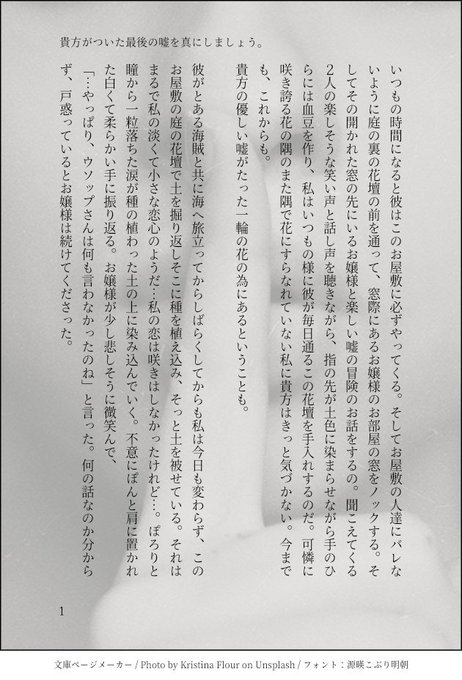 貴方がついた最後の嘘を真にしましょう。
いつもの時間になると彼はこのお屋敷に必ずやってくる。そしてお屋敷の人達にバレな
いように庭の裏の花壇の前を通って、窓際にあるお嬢様のお部屋の窓をノックする。そ
してその開かれた窓の先にいるお嬢様と楽しい嘘の冒険のお話をするの。聞こえてくる
2人の楽しそうな笑い声と話し声を聴きながら、指の先が土色に染まらせながら手のひ
らには血豆を作り、私はいつもの様に彼が毎日通るこの花壇を手入れするのだ。可憐に
咲き誇る花の隅のまた隅で花にすらなれていない私に貴方はきっと気づかない。今まで
も、これからも。
貴方の優しい嘘がたった一輪の花の為にあるということも。
彼がとある海賊と共に海へ旅立ってからしばらくしてからも私は今日も変わらず、この
お屋敷の庭の花壇で土を掘り返しそこに種を植え込み、そっと土を被せている。それは
まるで私の淡くて小さな恋心のようだ…私の恋は咲きはしなかったけれど…。ぽろりと
瞳から一粒落ちた涙が種の植わった土の上に染み込んでいく。不意にぽんと肩に置かれ
た白くて柔らかい手に振り返る。お嬢様が少し悲しそうに微笑んで、
「…やっぱり、ウソップさんは何も言わなかったのね」と言った。何の話なのか分から
ず、戸惑っているとお嬢様は続けてくださった。
1
文庫ページメーカー / Photo by Kristina Flour on Unsplash / フォント：源暎こぶり明朝